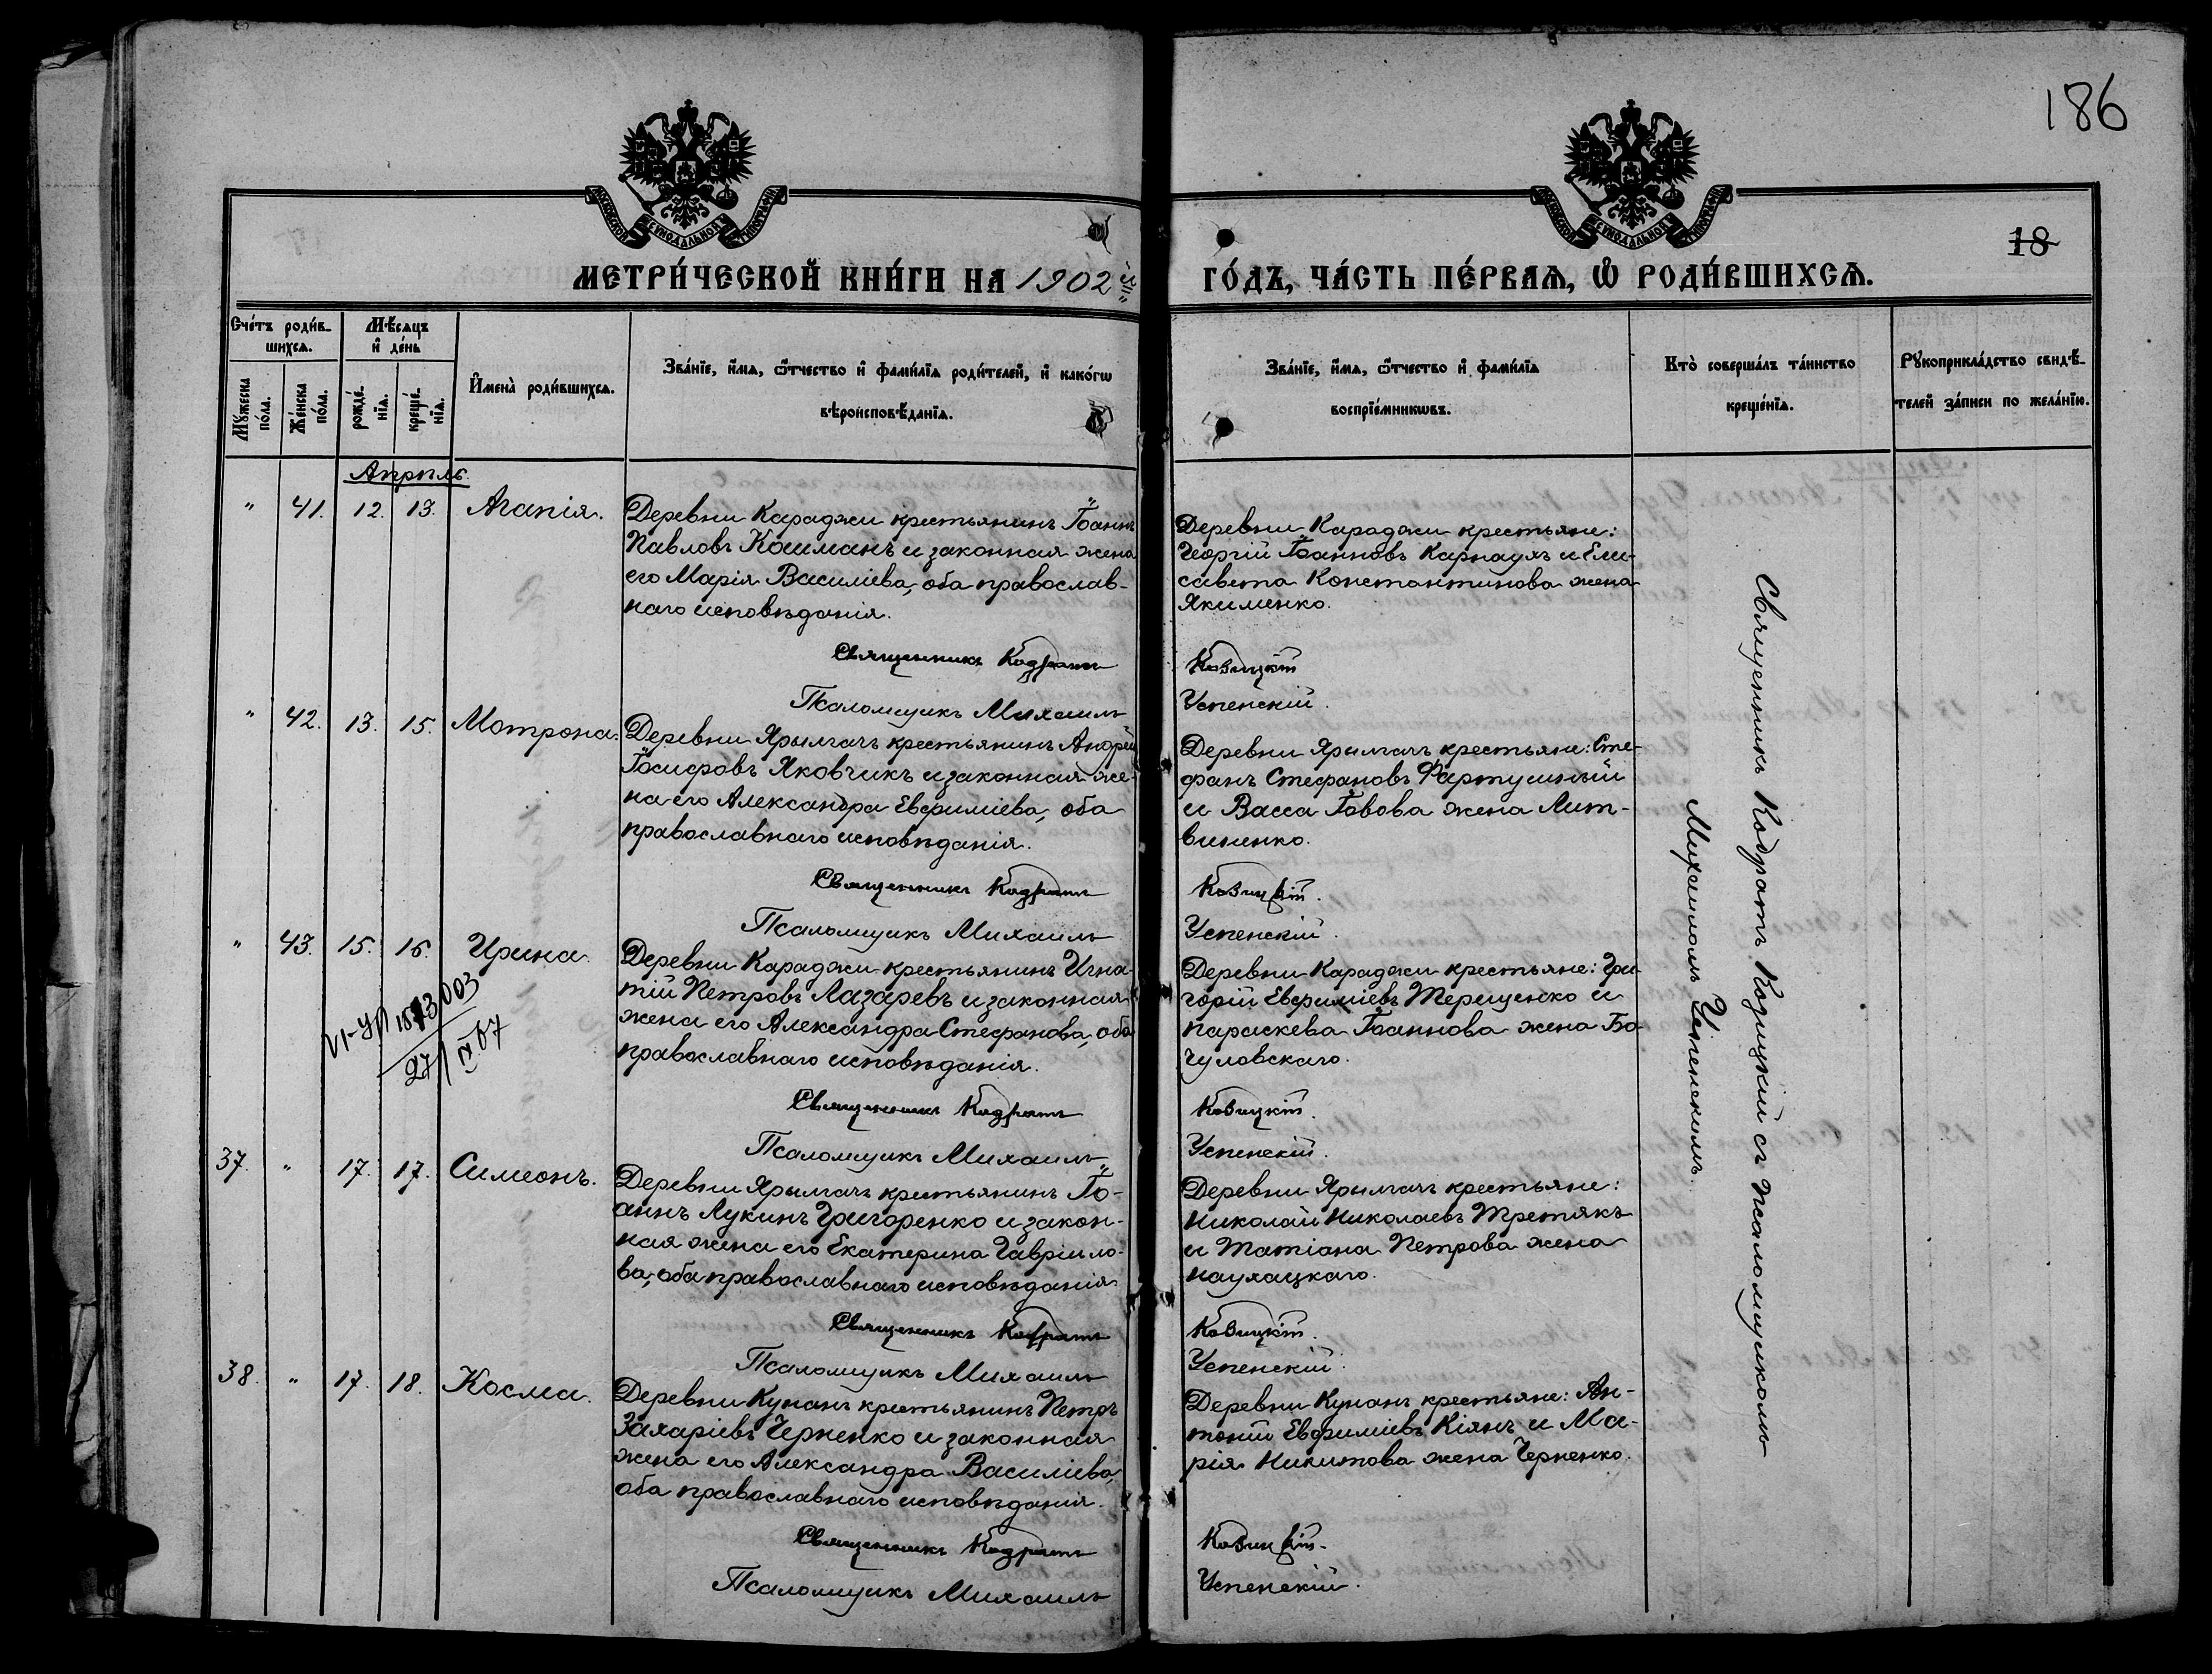 186
18
МОСКОВСКОЙ СѴНОДАЛЬНОЙ ТИПОГРАФІИ
МОСКОВСКОЙ СѴНОДАЛЬНОЙ ТИПОГРАФІИ
МЕТРИ́ЧЕСКОЙ КНИ́ГИ НА 1902 й
ГО́ДЪ, ЧА́СТЬ ПЕ́РВАѦ, Ѡ РОДИ́ВШИХСѦ.
Сче́тъ роди́в-
шихсѧ.
Мѣ́сѧцъ
и҆ де́нь
Мꙋ́жеска
по́ла.
Же́нска
по́ла.
рожде́-
нїѧ.
креще́-
нїѧ.
И҆мена̀ роди́вшихсѧ.
Зва́нїе, и҆́мѧ, ѻ҆́тчество и҆ фами́лїѧ роди́телей, и҆ како́гѡ
вѣроисповѣ́данїѧ.
Зва́нїе, и҆́мѧ, ѻ҆́тчество и҆ фами́лїѧ
воспрїе́мникѡвъ.
Кто̀ соверша́лъ та́инство
креще́нїѧ.
Рꙋкоприкла́дство свидѣ́-
телей за́писи по жела́нїю.
Апрѣль.
" 41. 12. 13. Агапія.
Деревни Караджи крестьянинъ Іоаннъ
Павловъ Кошманъ и законная жена
его Марія Василіева, оба православ-
наго исповѣданія.
Священникъ Кодратъ
Псаломщикъ Михаилъ
Деревни Караджи крестьяне:
Георгій Іоанновъ Карнаухъ и Ели-
савета Константинова жена
Якименко.
Козицкій
Успенскій.
" 42. 13. 15. Мотрона.
Деревни Ярылгачъ крестьянинъ Андрей
Іосифовъ Яковчикъ и законная же-
на его Александра Евфиміева, оба
православнаго исповѣданія.
Священникъ Кодратъ
Псаломщикъ Михаилъ
Деревни Ярылгачъ крестьяне: Сте-
фанъ Стефановъ Фартушный
и Васса Іовова жена Лит-
виненко.
Козицкій.
Успенскій.
" 43. 15. 16. Ирина.
27/IV 67
Деревни Караджи крестьянинъ Игна-
тій Петровъ Лазаревъ и законная
жена его Александра Стефанова, оба
православнаго исповѣданія.
Священникъ Кодратъ
Псаломщикъ Михаилъ
Деревни Караджи крестьяне: Гри-
горій Евфиміевъ Терещенко и
Параскева Іоаннова жена Бо-
гуловскаго.
Козицкій.
Успенскій.
37. " 17. 17. Симеонъ.
Деревни Ярылгачъ крестьянинъ Іо-
аннъ Лукинъ Григоренко и закон-
ная жена его Екатерина Гавріило-
ва, оба православнаго исповѣданія
Священникъ Кодратъ
Псаломщикъ Михаилъ
Деревни Ярылгачъ крестьяне:
Николай Николаевъ Третякъ
и Татіана Петрова жена
Наухацкаго.
Козицкій.
Успенскій.
38. " 17. 18. Косма.
Деревни Кунанъ крестьянинъ Петръ
Захаріевъ Черненко и законная
жена его Александра Василіева,
оба православнаго исповѣданія.
Священникъ Кодратъ
Псаломщикъ Михаилъ
Деревни Кунанъ крестьяне: Ан-
тоній Евфиміевъ Кіянъ и Ма-
рія Никитова жена Черненко.
Козицкій.
Успенскій.
Священникъ Кодратъ Козицкій съ псаломщикомъ
Михаиломъ Успенскимъ.